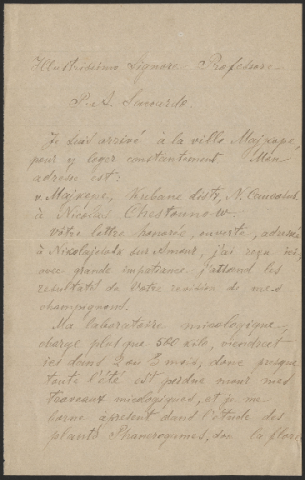 Illustrissimo Signore Professore
P. A. Saccardo
Je suis arrivé à la ville Majkope,
pour y loger constantement. Mon
adresse est:
v. Majkope, Kubane distr., N. Caucasus.
à Nicolas Chestounow.
Vôtre lettre honorée, ouverte, adressée
à Nicolajewsk sur Amour, j'ai reçu ici,
avec grande impatience j'attend les
resultats de Votre revision de mes
champignons.
Ma laboratoire micologique,
chargé plus que 500 kilo, viendront
ici dans 2 ou 3 mois, donc presque
toute l'été est perdue pour mes
travaux micologiques, et je me
borne àpresent dans l'étude des
plants Phanerogames, don la flore